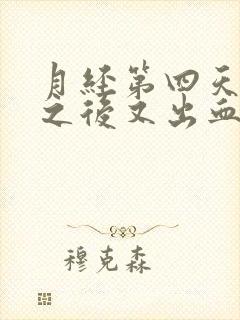 月经第四天
之後又出血
穆克森